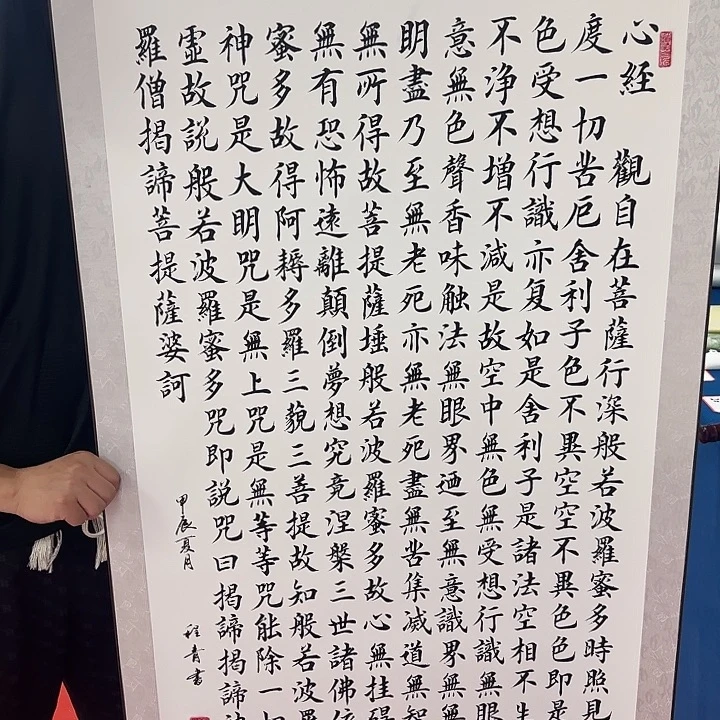 心經 觀自在菩薩行深般若波羅蜜多時照見
度一切苦厄舍利子色不異空空不異色色即是
色受想行識亦复如是舍利子是諸法空相不生
不浄不增不減是故空中無色無受想行識無眼
意無色聲香味触法無眼界迺至無意識界無無
眀盡乃至無老死亦無老死盡無苦集滅道無智
無所得故菩提薩埵般若波羅蜜多故心無挂碍
無有恐怖遠離顛倒夢想究竟涅槃三世諸佛依
蜜多故得阿耨多羅三藐三菩提故知般若波羅
神咒是大眀咒是無上咒是無等等咒能除一切
虛故説般若波羅蜜多咒即説咒曰揭諦揭諦波
羅僧揭諦菩提薩婆訶
甲辰夏月
程青書